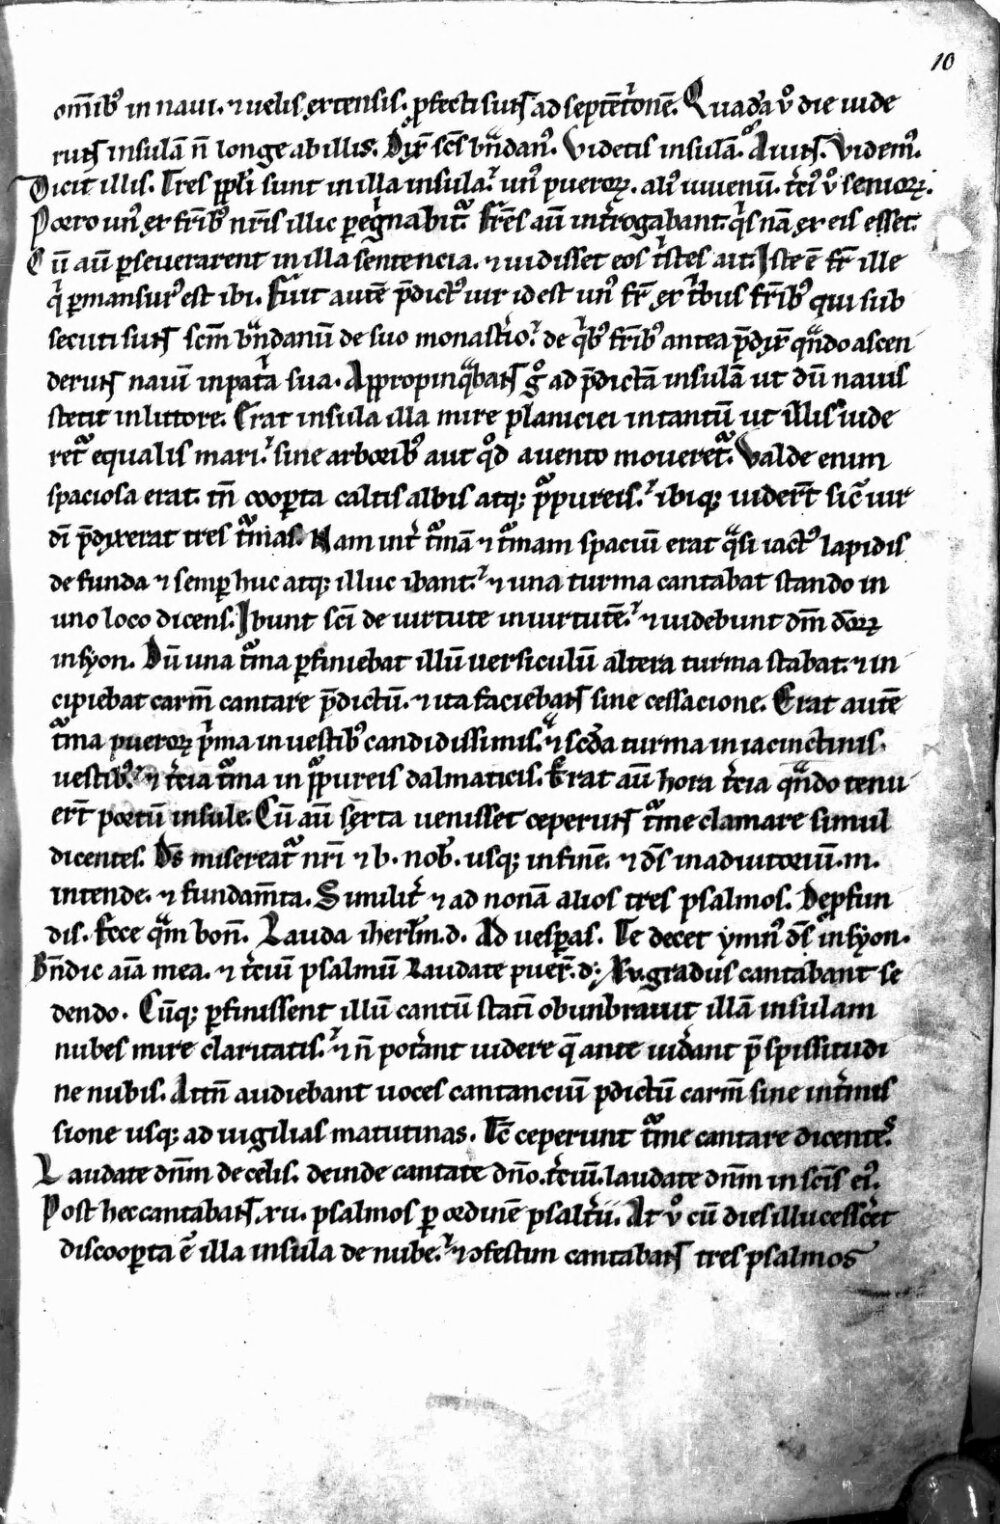 10
om̄ib⁹ in naui. ⁊ uelis extensis. ꝓfecti sunt ad septēt'onē. Quadā v° die uide
runt insulā n̄ longe ab illis. Dix̄ scs bn̄dan⁹. Videtis insulā. Aiunt. Videm⁹.
Dicit illis. Tres ppl'i sunt in illa insula. un⁹ pueroꝝ. ali⁹ iuuenū. t'ci⁹ v° senioꝝ.
Porro un⁹ ex frīb⁹ nr̄is illic ꝑeg'nabit'. Fr̄es aū int'rogabant. q's nā ex eis esset.
Cū aū ꝑseuerarent in illa sentencia. ⁊ uidisset eos t'stes ait. Iste ē fr̄ ille
q' ꝑmansur⁹ est ibi. Fuit autē p̄dict⁹ uir id est un⁹ fr̄ ex t'bus frīb⁹ qui sub
secuti sunt scm̄ bn̄danū de suo monast'io. de q'b⁹ frīb⁹ antea p̄dix̄ qᵃndo ascen
derunt nauī in pat'a sua. Appropinqᵃbant g° ad p̄dictā insulā ut dū nauis
stetit in littore. Erat insula illa mire planiciei in tantū ut illis uide
ret' equalis mari. sine arborib⁹ aut q°d a uento moueret'. Valde enim
spaciosa erat. tn̄ cooꝑta caltis albis atq; p'pureis. ibiq; uider̄t sic̄ uir
dī p̄dixerat tres tᵃmas. Nam int' tᵃmā ⁊ tᵃmam spaciū erat qᵃsi iact⁹ lapidis
de funda ⁊ semꝑ huc atq; illuc ibant. ⁊ una turma cantabat stando in
uno loco dicens. Ibunt scī de uirtute in uirtutē. ⁊ uidebunt dm̄ deoꝝ
in syon. Dū una tᵃma ꝑfiniebat illū uersiculū altera turma stabat. ⁊ in
cipiebat carm̄ cantare p̄dictū. ⁊ ita faciebant sine cessacione. Erat autē
tᵃma pueroꝝ p'ma in uestib⁹ candidissimis. ⁊ scd̄a turma in iacinctinis.
uestib⁹. ⁊ t'cia tᵃma in p'pureis dalmaticis. Erat aū hora t'cia qᵃndo tenu
er̄t portū insule. Cū aū sexta uenisset ceperunt tᵃme clamare simul
dicentes. Ds̄ misereat' nr̄i ⁊ b. nob̄. usq; in finē. ⁊ ds̄ in adiutoriū. m.
intende. ⁊ fundam̄ta. Similit' ⁊ ad nonā alios tres psalmos. De ꝓfun
dis. Ecce qᵃm bon̄. Lauda iherl'm. d. Ad uesꝑas. Te decet ymn⁹ ds̄ in syon.
Bn̄dic aīa mea. ⁊ t'ciū psalmū Laudate puer̄. d; xv. gradus cantabant se
dendo. Cūq; ꝑfinissent illū cantū statī obumbrauit illā insulam
nubes mire claritatis. ⁊ n̄ pot'ant uidere q̄ ante uid'ant p̄ spissitudi
ne nubis. Attn̄ audiebant uoces cantanciū p̄dictū carm̄ sine int'mis
sione usq; ad uigilias matutinas. Tc̄ ceperunt tᵃme cantare dicentes.
Laudate dn̄m de celis. deinde cantate dn̄o. t'ciū. laudate dn̄m in scīs ei⁹.
Post hec cantabant. xii. psalmos ꝑ ordinē psalt'ii. At v° cū dies illucesset
discooꝑta ē illa insula de nube. ⁊ ꝯfestim cantabant tres psalmos